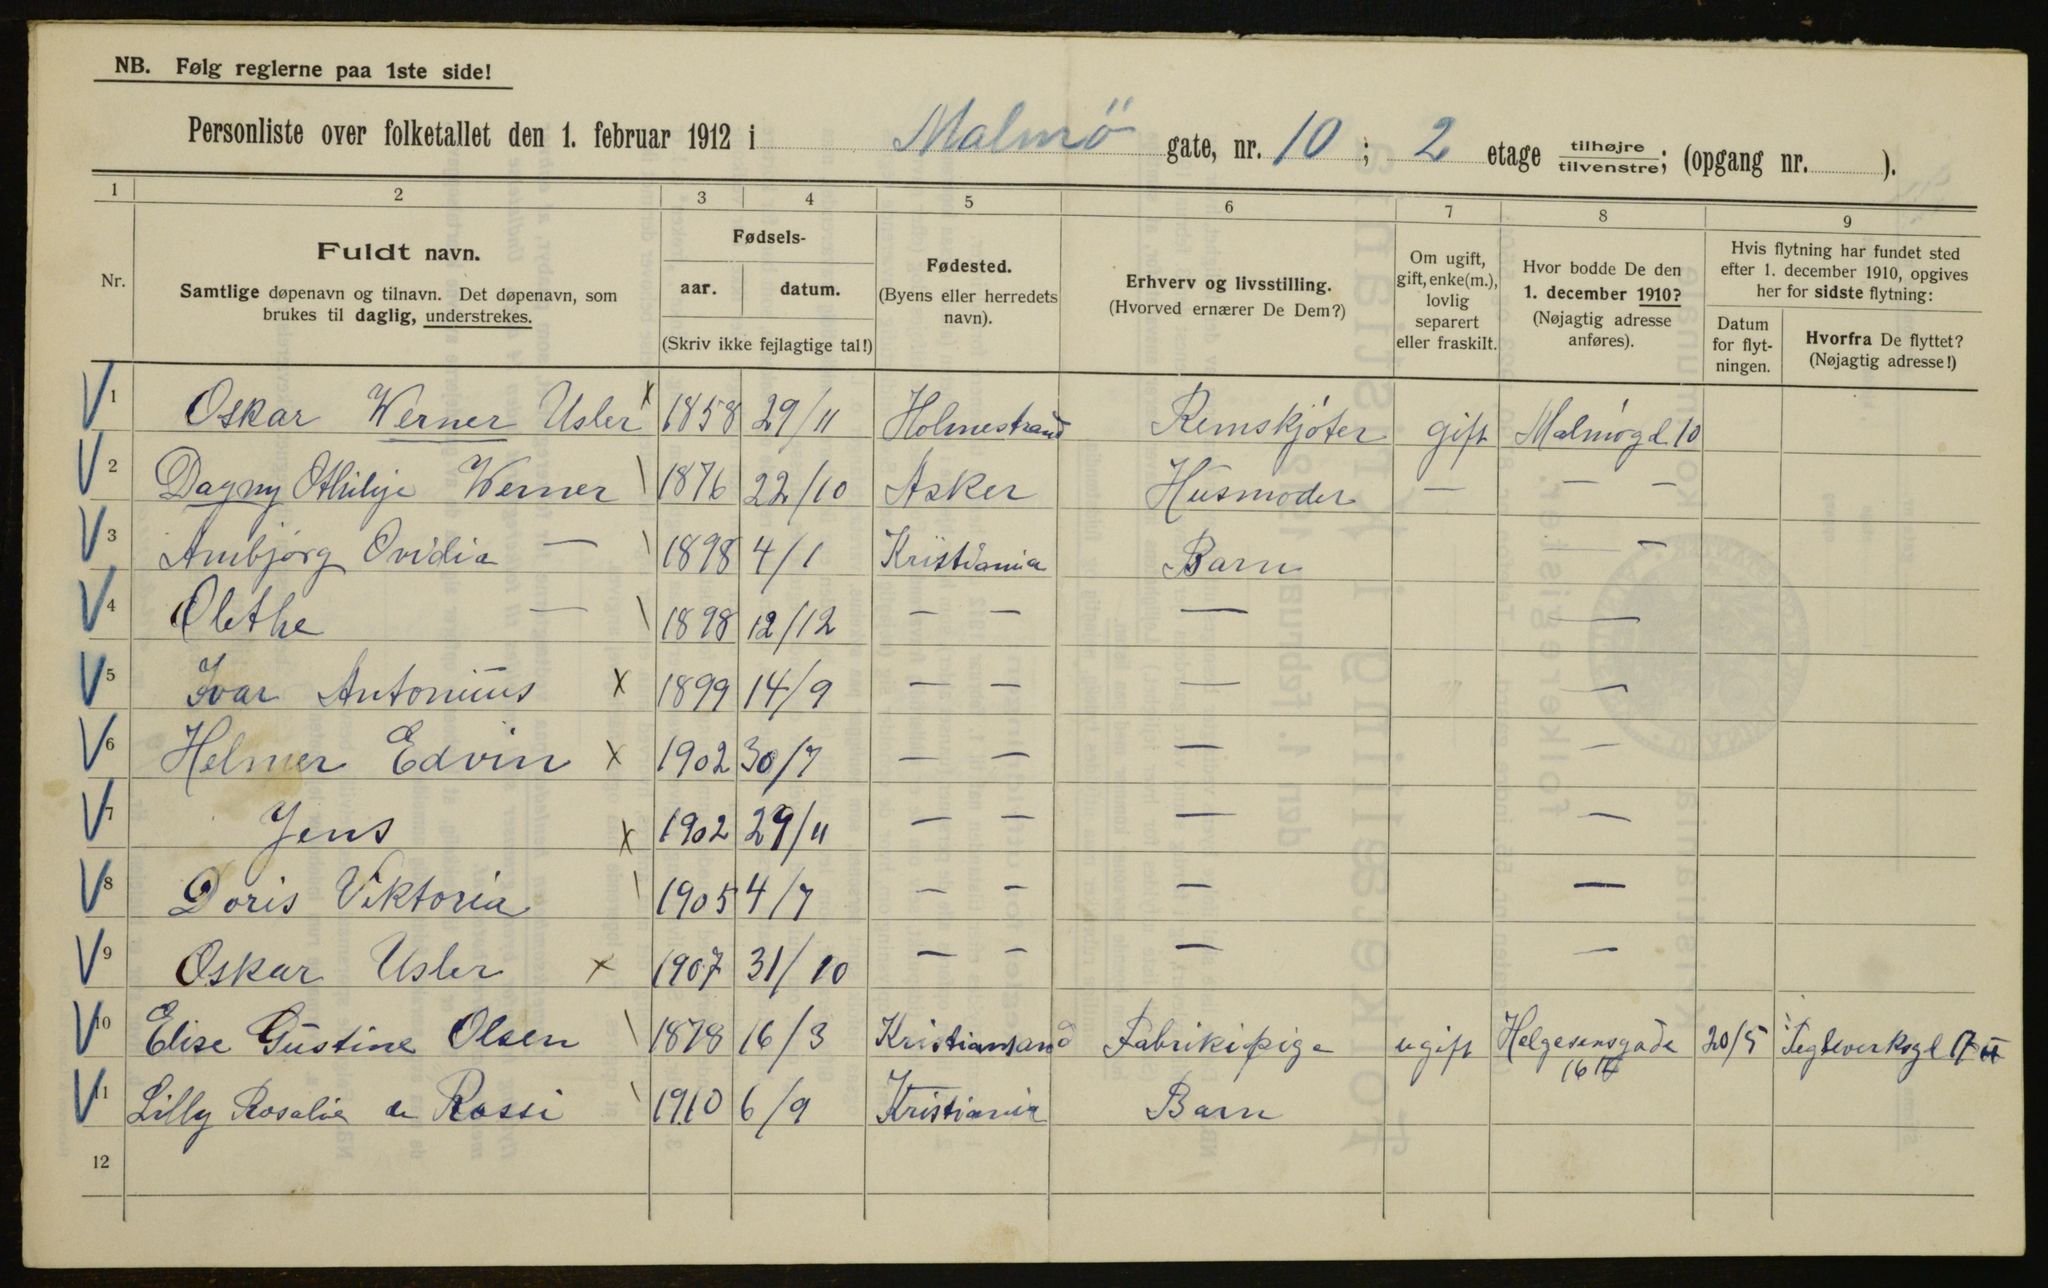 NB. Følg reglerne paa 1ste side!
Personliste over folketallet den 1. februar 1912 i Malmö gate, nr. 10; 2 etage tilhøjre/tilvenstre; (opgang nr. ).
1 2 3 4 5 6 7 8 9
Nr.
Fuldt navn.
Samtlige døpenavn og tilnavn. Det døpenavn, som
brukes til daglig, understrekes.
Fødsels-
aar. datum.
(Skriv ikke fejlagtige tal!)
Fødested.
(Byens eller herredets
navn).
Erhverv og livsstilling.
(Hvorved ernærer De Dem?)
Om ugift,
gift, enke(m.),
lovlig
separert
eller fraskilt.
Hvor bodde De den
1. december 1910?
(Nøjagtig adresse
anføres).
Hvis flytning har fundet sted
efter 1. december 1910, opgives
her for sidste flytning:
Datum
for flyt-
ningen.
Hvorfra De flyttet?
(Nøjagtig adresse!)
V 1 Oskar Werner Usler x 1858 29/11 Holmestrand Remskjöter gift Malmögd 10
V 2 Dagny Othilije Werner \ 1876 22/10 Asker Husmoder — — —
V 3 Ambjörg Ovidia — \ 1898 4/1 Kristiania Barn — —
V 4 Olethe — \ 1898 12/12 — — — —
V 5 Ivar Antonius x 1899 14/9 — — — —
V 6 Helmer Edvin x 1902 30/7 — — — —
V 7 Jens x 1902 29/11 — — — —
V 8 Doris Viktoria \ 1905 4/7 — — — —
V 9 Oskar Usler x 1907 31/10 — — — —
V 10 Elise Gustine Olsen \ 1878 16/3 Kristiansand Fabrikipige ugift Helgesensgade 20/5 Teglverksgd 17
16
V 11 Lilly Rosalie de Rossi \ 1910 6/9 Kristiania Barn
12